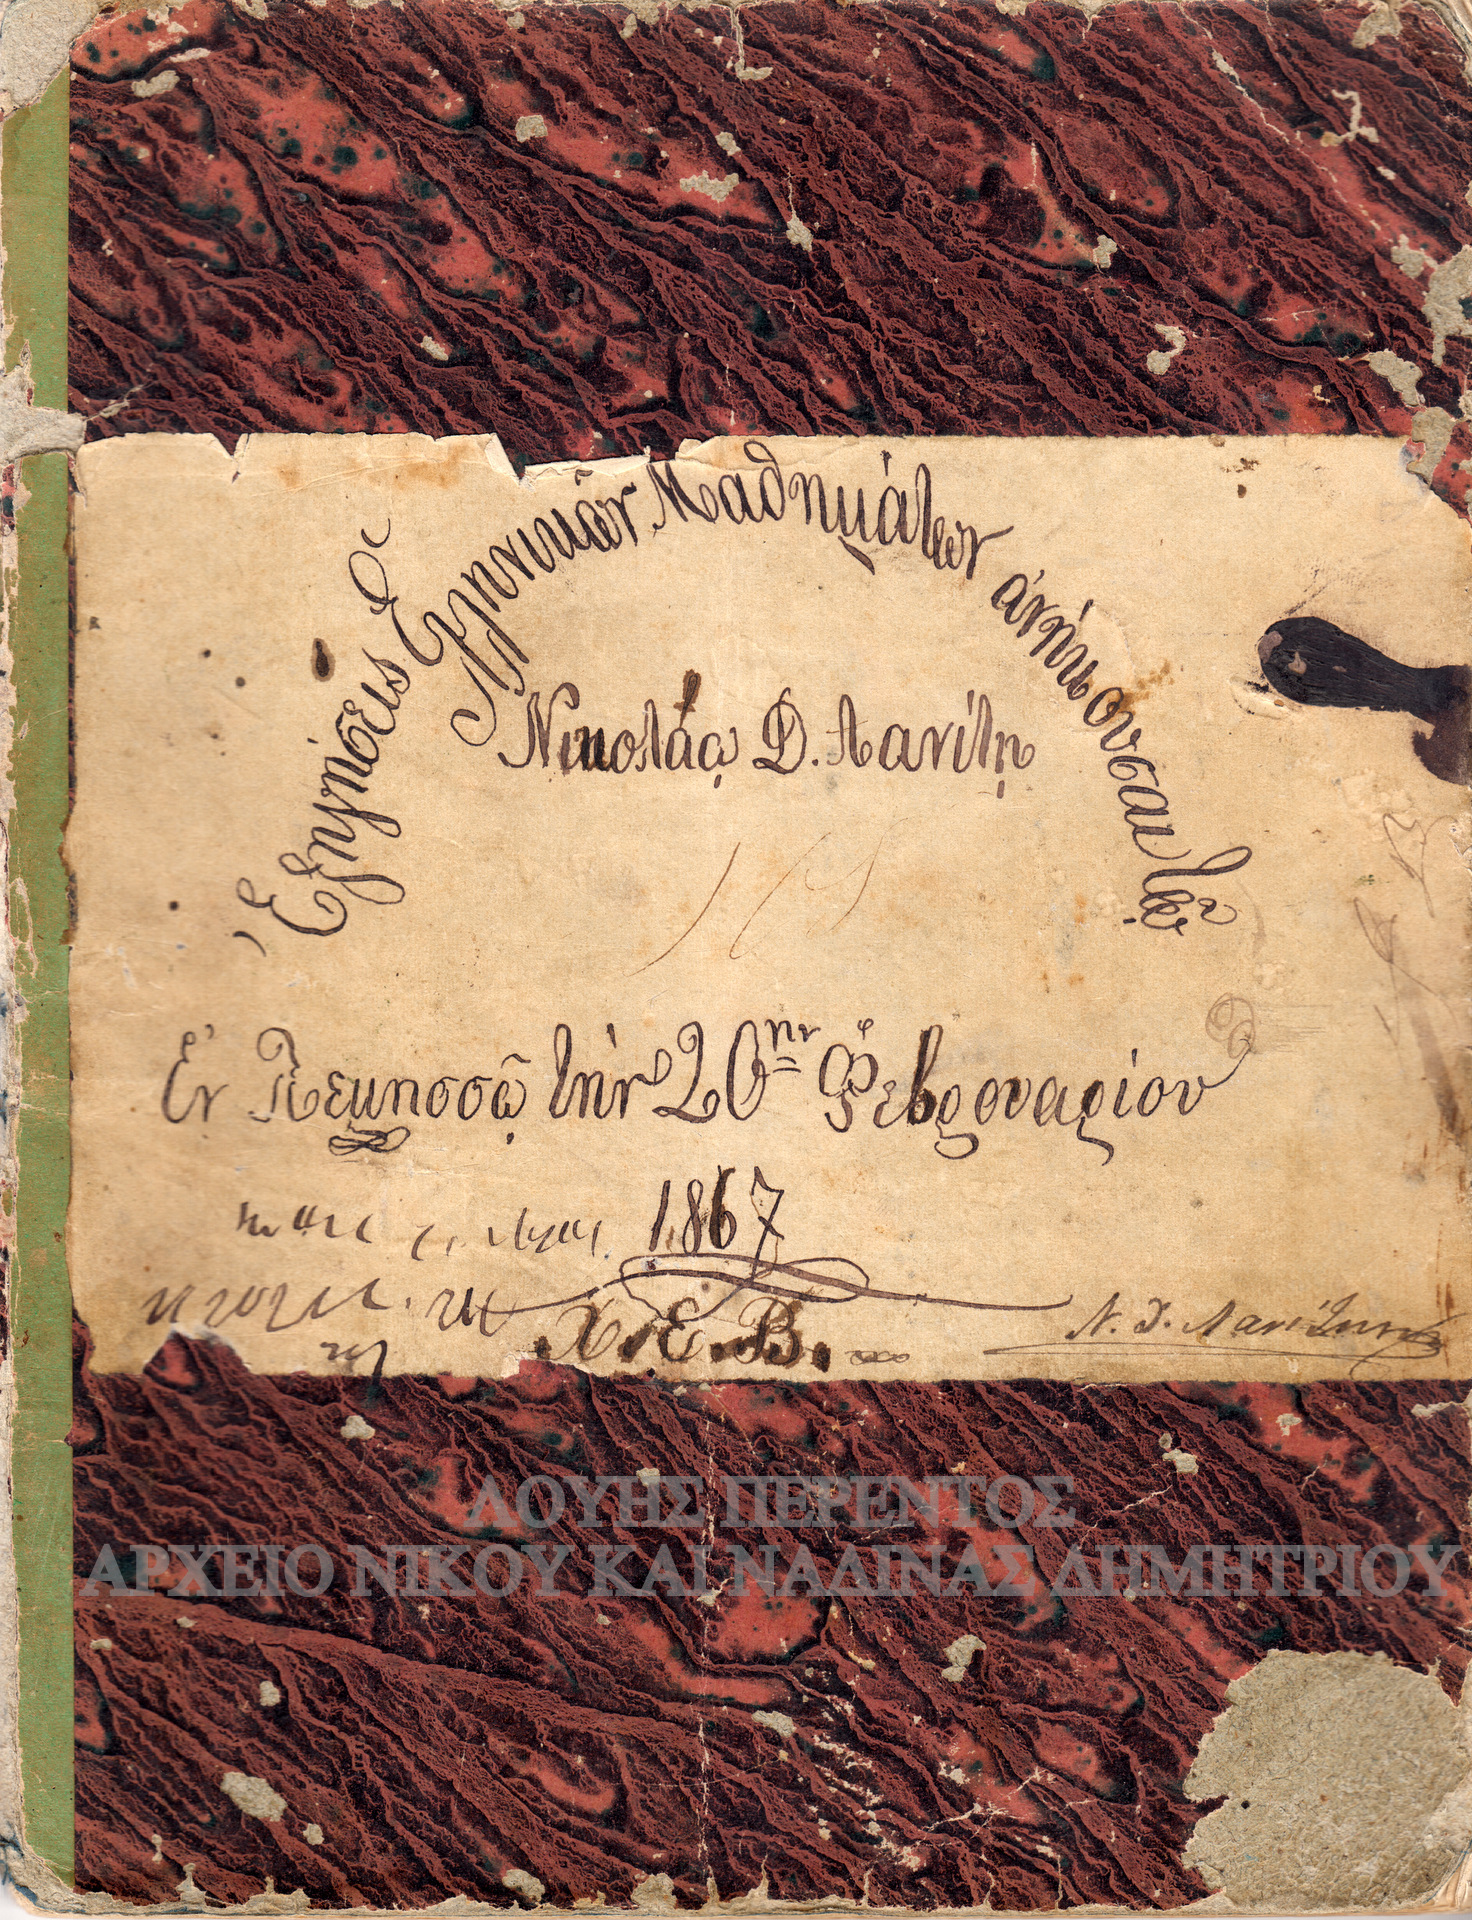 Ἐξηγήσεις Ἑλληνικῶν Μαθημάτων ἀνήκουσαι τῷ
Νικολάῳ Δ. Λανίτῃ
Ἐν Λεμησσῷ τὴν 20ην Φεβρουαρίου
1867
Χ. Ε. Β.
Ν. Δ. Λανίτης
ΛΟΥΗΣ ΠΕΡΕΝΤΟΣ
ΑΡΧΕΙΟ ΝΙΚΟΥ ΚΑΙ ΝΑΔΙΝΑΣ ΔΗΜΗΤΡΙΟΥ